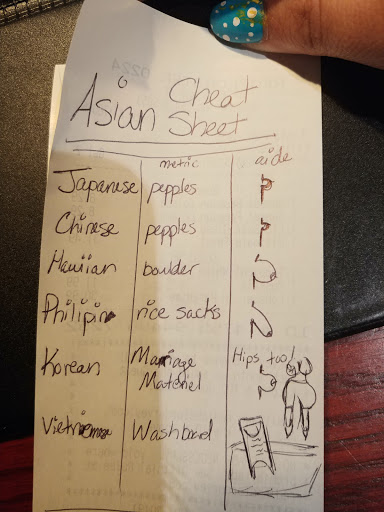 Asian Cheat
Sheet
metric aide
Japanese pepples
Chinese pepples
Hawiian boulder
Philipino rice sacks
Korean Marriage Hips too!
Materiel
Vietnamese Washboard